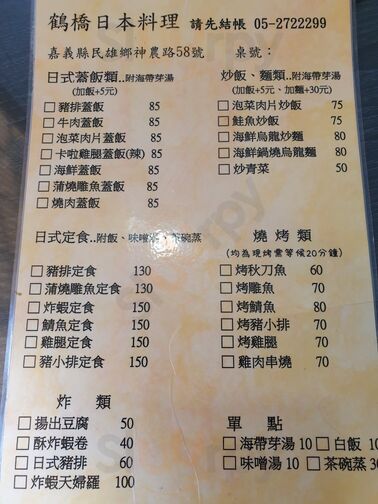 鶴橋日本料理 請先結帳 05-2722299
嘉義縣民雄鄉神農路58號 桌號：
日式蓋飯類..附海帶芽湯
(加飯+5元)
□豬排蓋飯 85
□牛肉蓋飯 85
□泡菜肉片蓋飯 85
□卡啦雞腿蓋飯(辣) 85
□海鮮蓋飯 85
□蒲燒雕魚蓋飯 85
□燒肉蓋飯 85
炒飯、麵類..附海帶芽湯
(加飯+5元、加麵+30元)
□泡菜肉片炒飯 75
□鮭魚炒飯 75
□海鮮烏龍炒麵 80
□海鮮鍋燒烏龍麵 80
□炒青菜 50
日式定食..附飯、味噌湯、茶碗蒸
□豬排定食 130
□蒲燒雕魚定食 130
□炸蝦定食 150
□鯖魚定食 150
□雞腿定食 150
□豬小排定食 150
燒烤類
(均為現烤需等候20分鐘)
□烤秋刀魚 60
□烤雕魚 70
□烤鯖魚 80
□烤豬小排 70
□烤雞腿 70
□雞肉串燒 70
炸類
□揚出豆腐 50
□酥炸蝦卷 40
□日式豬排 60
□炸蝦天婦羅 100
單點
□海帶芽湯 10 □白飯 10
□味噌湯 10 □茶碗蒸 30